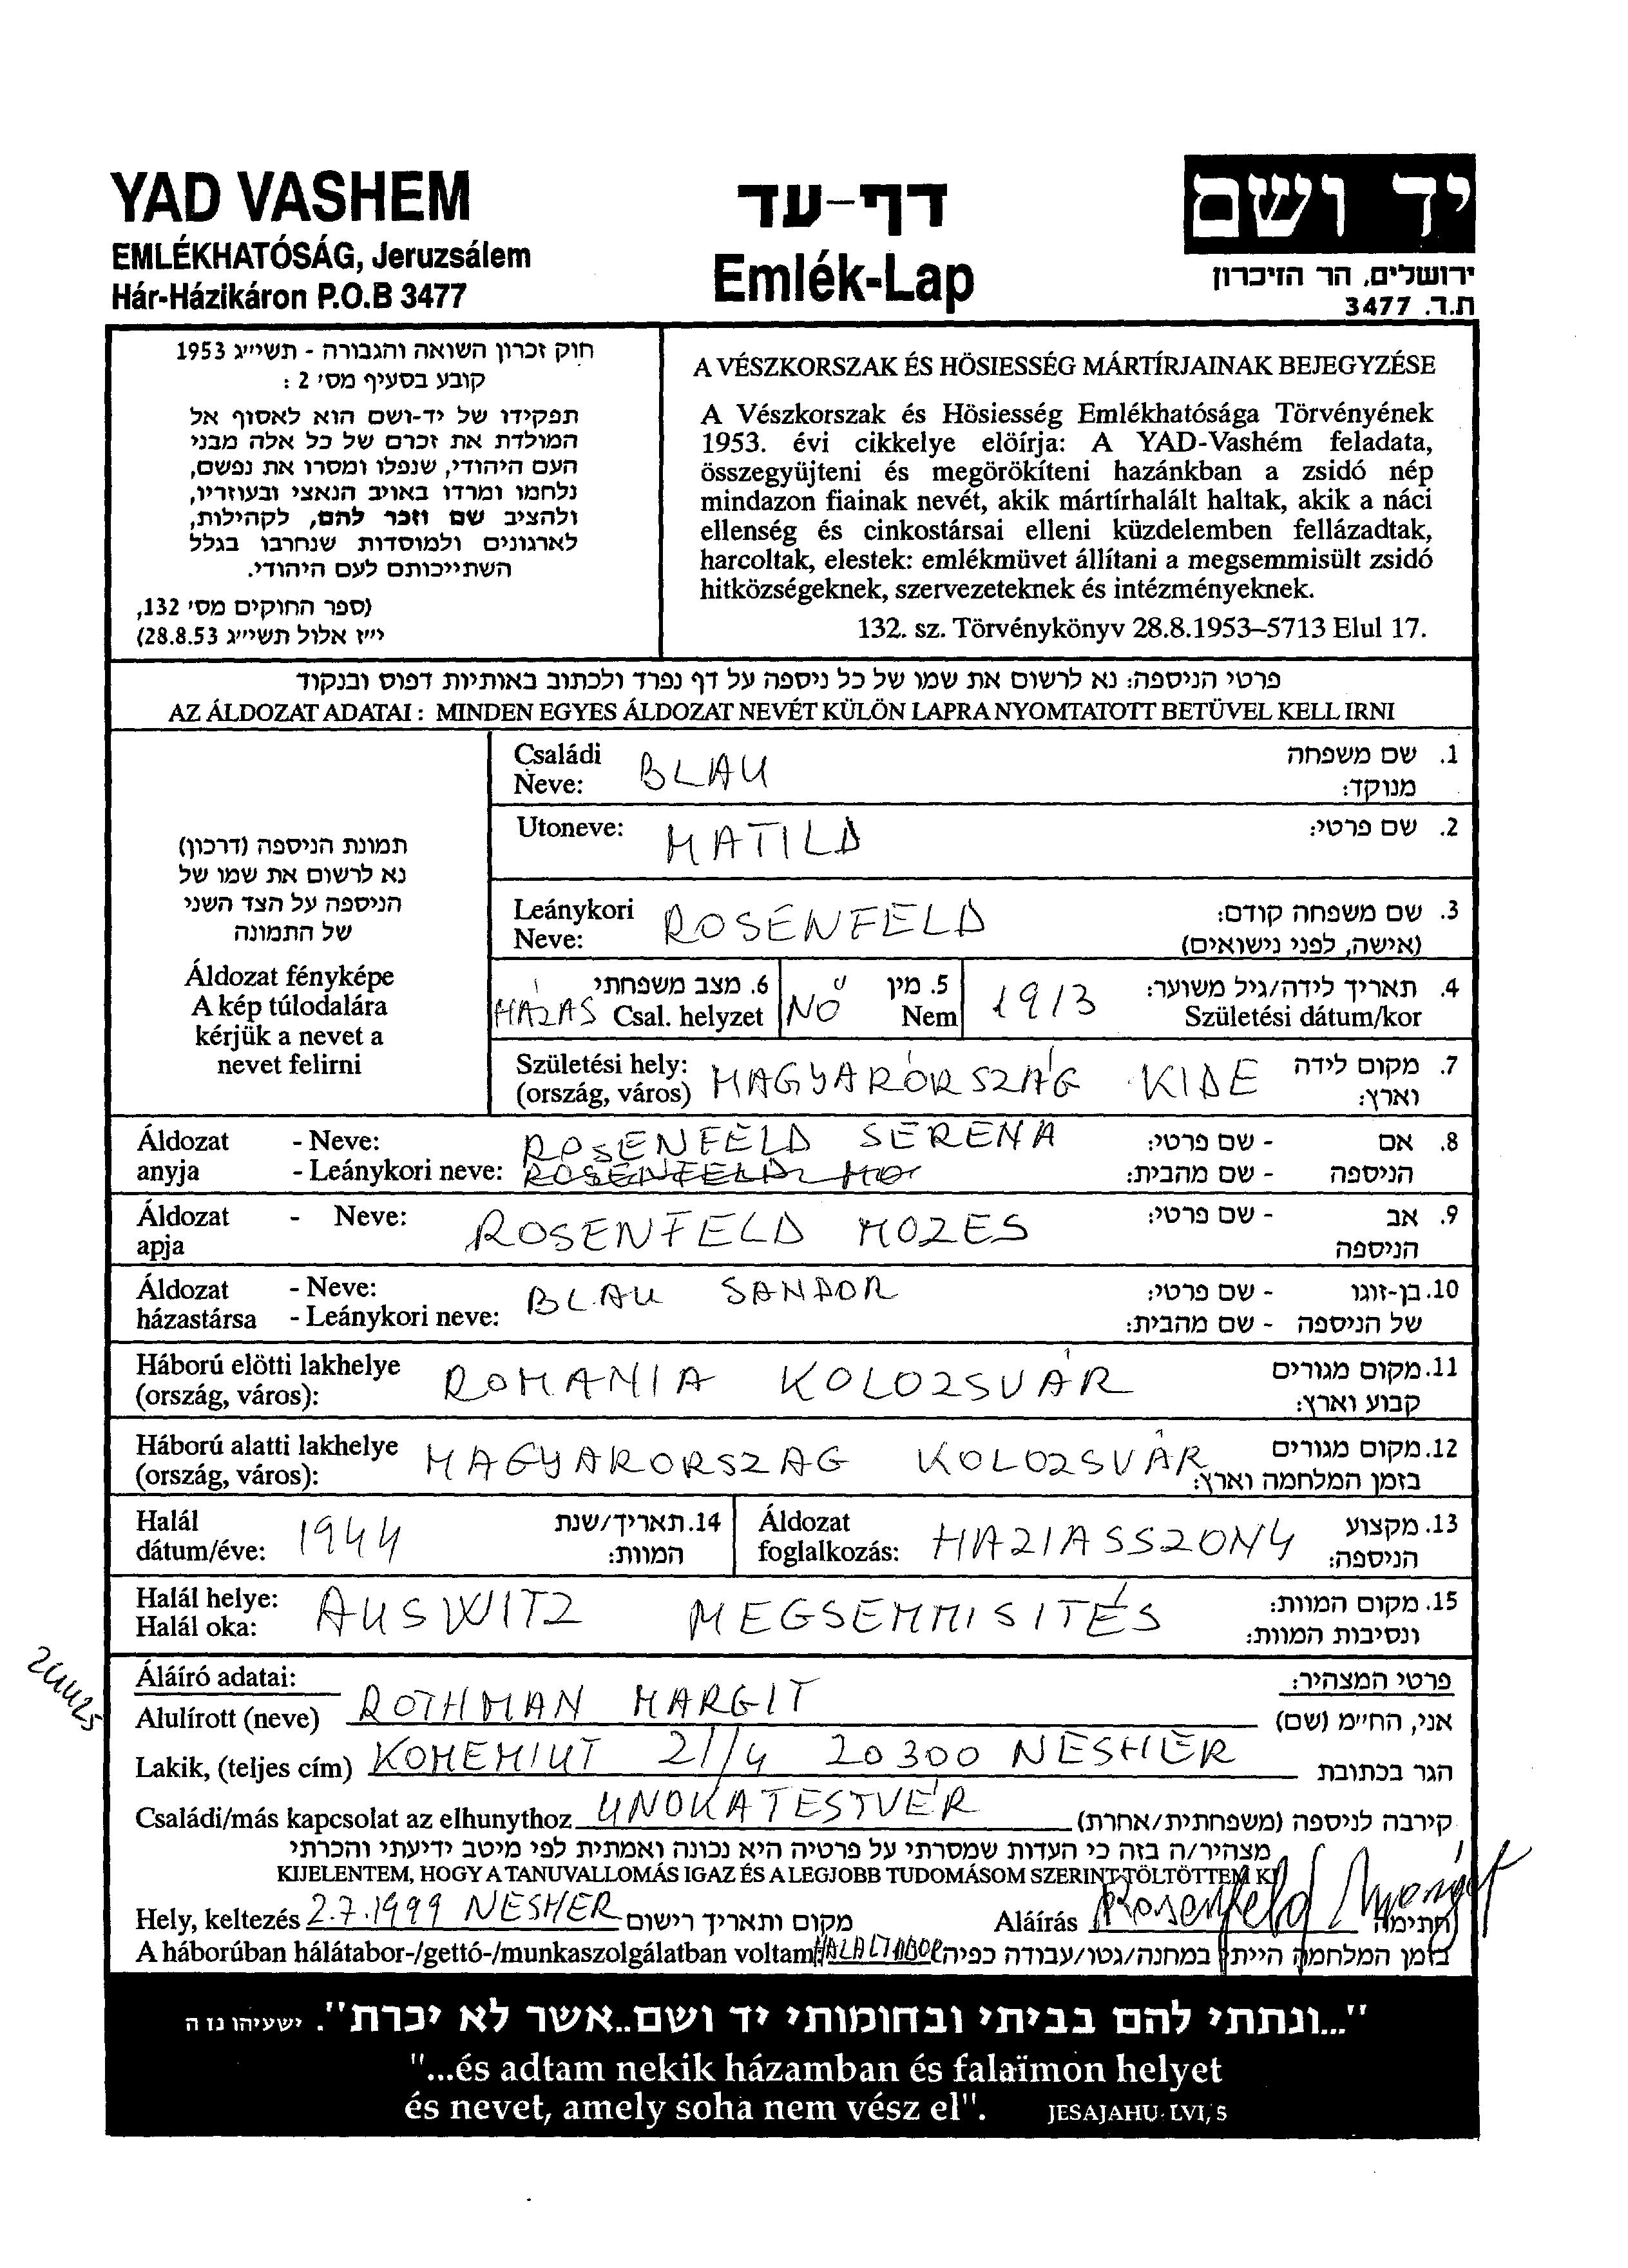 YAD VASHEM
EMLÉKHATÓSÁG, Jeruzsálem
Hár-Házikáron P.O.B 3477
דף-עד
Emlék-Lap
יד ושם
ירושלים, הר הזיכרון
ת.ד. 3477
חוק זכרון השואה והגבורה - תשי״ג 1953
קובע בסעיף מס׳ 2 :
תפקידו של יד-ושם הוא לאסוף אל
המולדת את זכרם של כל אלה מבני
העם היהודי, שנפלו ומסרו את נפשם,
נלחמו ומרדו באויב הנאצי ובעוזריו,
ולהציב שם וזכר להם, לקהילות,
לארגונים ולמוסדות שנחרבו בגלל
השתייכותם לעם היהודי.
(ספר החוקים מס׳ 132,
י״ז אלול תשי״ג 28.8.53)
A VÉSZKORSZAK ÉS HÖSIESSÉG MÁRTÍRJAINAK BEJEGYZÉSE
A Vészkorszak és Hösiesség Emlékhatósága Törvényének
1953. évi cikkelye elöírja: A YAD-Vashém feladata,
összegyüjteni és megörökíteni hazánkban a zsidó nép
mindazon fiainak nevét, akik mártírhalált haltak, akik a náci
ellenség és cinkostársai elleni küzdelemben fellázadtak,
harcoltak, elestek: emlékmüvet állítani a megsemmisült zsidó
hitközségeknek, szervezeteknek és intézményeknek.
132. sz. Törvénykönyv 28.8.1953–5713 Elul 17.
פרטי הניספה: נא לרשום את שמו של כל ניספה על דף נפרד ולכתוב באותיות דפוס ובנקוד
AZ ÁLDOZAT ADATAI : MINDEN EGYES ÁLDOZAT NEVÉT KÜLÖN LAPRA NYOMTATOTT BETÜVEL KELL IRNI
תמונת הניספה (דרכון)
נא לרשום את שמו של
הניספה על הצד השני
של התמונה
Áldozat fényképe
A kép túlodalára
kérjük a nevet a
nevet felirni
Családi Neve: BLAU 1. שם משפחה מנוקד:
Utoneve: MATILD 2. שם פרטי:
Leánykori Neve: ROSENFELD 3. שם משפחה קודם: (אישה, לפני נישואים)
HÁZAS 6. מצב משפחתי Csal. helyzet NŐ 5. מין Nem 1913 4. תאריך לידה/גיל משוער: Születési dátum/kor
Születési hely: (ország, város) MAGYARORSZÁG KIDE 7. מקום לידה וארץ:
Áldozat - Neve: ROSENFELD SERENA 8. אם - שם פרטי:
anyja - Leánykori neve: הניספה - שם מהבית:
Áldozat - Neve: ROSENFELD MOZES 9. אב - שם פרטי:
apja הניספה
Áldozat - Neve: BLAU SANDOR 10. בן-זוגו - שם פרטי:
házastársa - Leánykori neve: של הניספה - שם מהבית:
Háború elötti lakhelye ROMANIA KOLOZSVÁR 11. מקום מגורים
(ország, város): קבוע וארץ:
Háború alatti lakhelye MAGYARORSZAG KOLOZSVÁR 12. מקום מגורים
(ország, város): בזמן המלחמה וארץ:
Halál dátum/éve: 1944 14. תאריך/שנת המוות: Áldozat foglalkozás: HAZIASSZONY 13. מקצוע הניספה:
Halál helye: AUSWITZ MEGSEMMISITÉS 15. מקום המוות:
Halál oka: ונסיבות המוות:
Áláíró adatai: פרטי המצהיר:
Alulírott (neve) ROTHMAN MARGIT אני, החי״מ (שם)
Lakik, (teljes cím) KOMEMIUT 21/4 20300 NESHER הגר בכתובת
Családi/más kapcsolat az elhunythoz UNOKATESTVÉR קירבה לניספה (משפחתית/אחרת)
מצהיר/ה בזה כי העדות שמסרתי על פרטיה היא נכונה ואמתית לפי מיטב ידיעתי והכרתי
KIJELENTEM, HOGY A TANUVALLOMÁS IGAZ ÉS A LEGJOBB TUDOMÁSOM SZERINT TÖLTÖTTEM KI
Hely, keltezés 2.7.1999 NESHER מקום ותאריך רישום Aláírás Rosenfeld Margit חתימה
A háborúban hálátabor-/gettó-/munkaszolgálatban voltam HALALTABOR בזמן המלחמה הייתי במחנה/גטו/עבודה כפיה
"...ונתתי להם בביתי ובחומותי יד ושם..אשר לא יכרת". ישעיהו נו ה
"...és adtam nekik házamban és falaïmon helyet
és nevet, amely soha nem vész el". JESAJAHU. LVI, 5